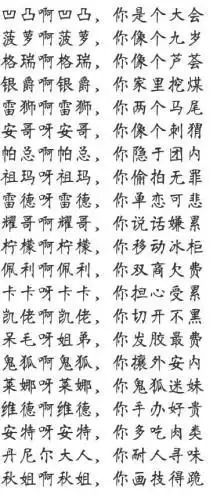 凹凸啊凹凸，你是个大会
菠萝啊菠萝，你像个九岁
格瑞啊格瑞，你像个芦荟
银爵啊银爵，你家里挖煤
雷狮啊雷狮，你两个马尾
安哥呀安哥，你像个刺猬
帕总啊帕总，你隐于团内
祖玛呀祖玛，你偷拍无罪
雷德呀雷德，你单恋可悲
耀哥啊耀哥，你说话嫌累
柠檬呀柠檬，你移动冰柜
佩利啊佩利，你双商欠费
卡卡呀卡卡，你担心受累
凯佬啊凯佬，你切开不黑
呆毛呀姐弟，你发胶最费
鬼狐啊鬼狐，你攘外安内
莱娜呀莱娜，你鬼狐迷妹
维德啊维德，你手办好贵
安特呀安特，你多吃肉类
丹尼尔大人，你耐人寻味
秋姐啊秋姐，你画技得跪